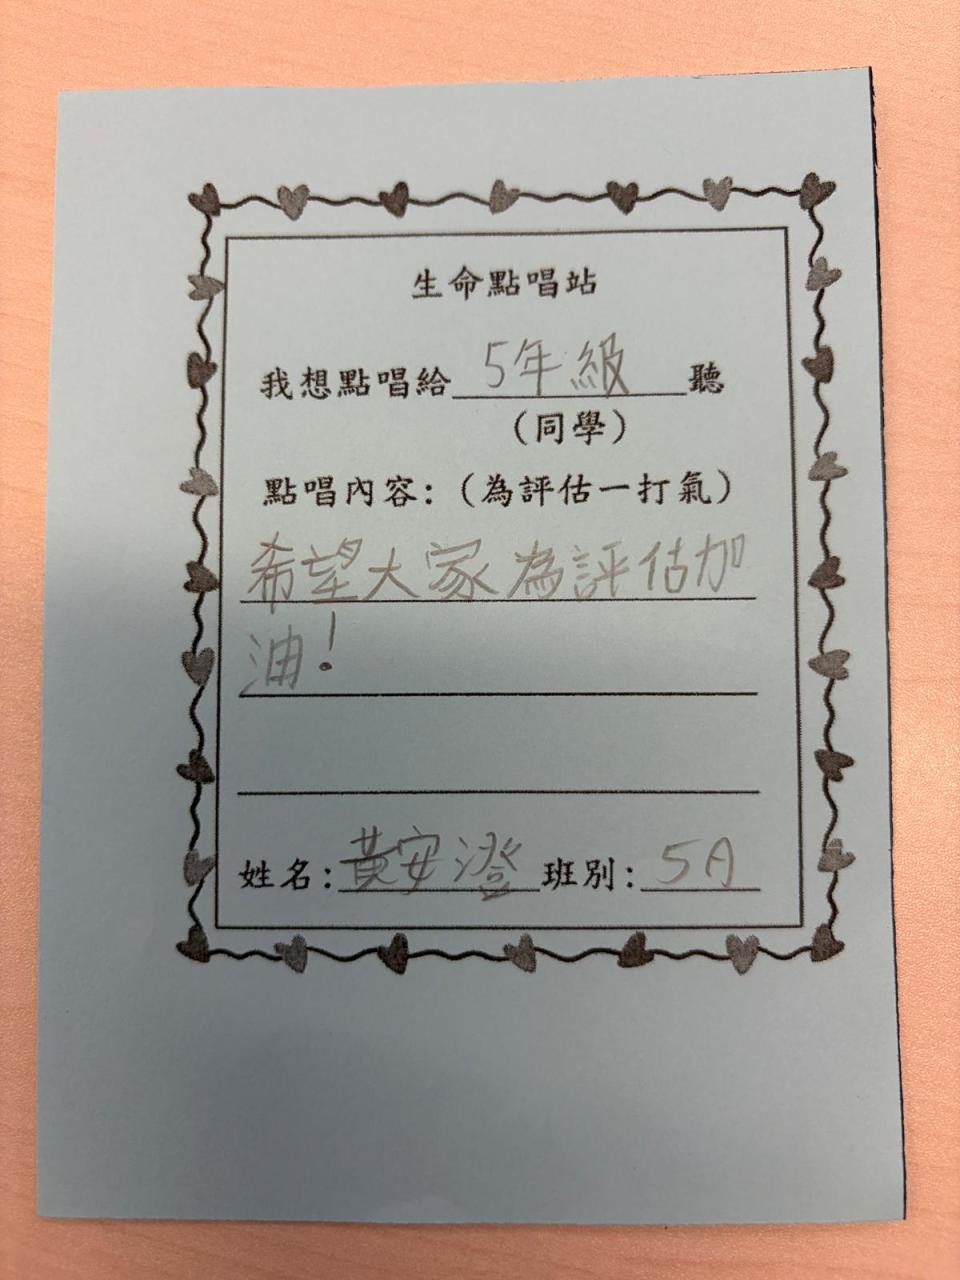 生命點唱站
我想點唱給5年級聽
(同學)
點唱內容:(為評估一打氣)
希望大家為評估加
油!
姓名:黃安澄班別:5A